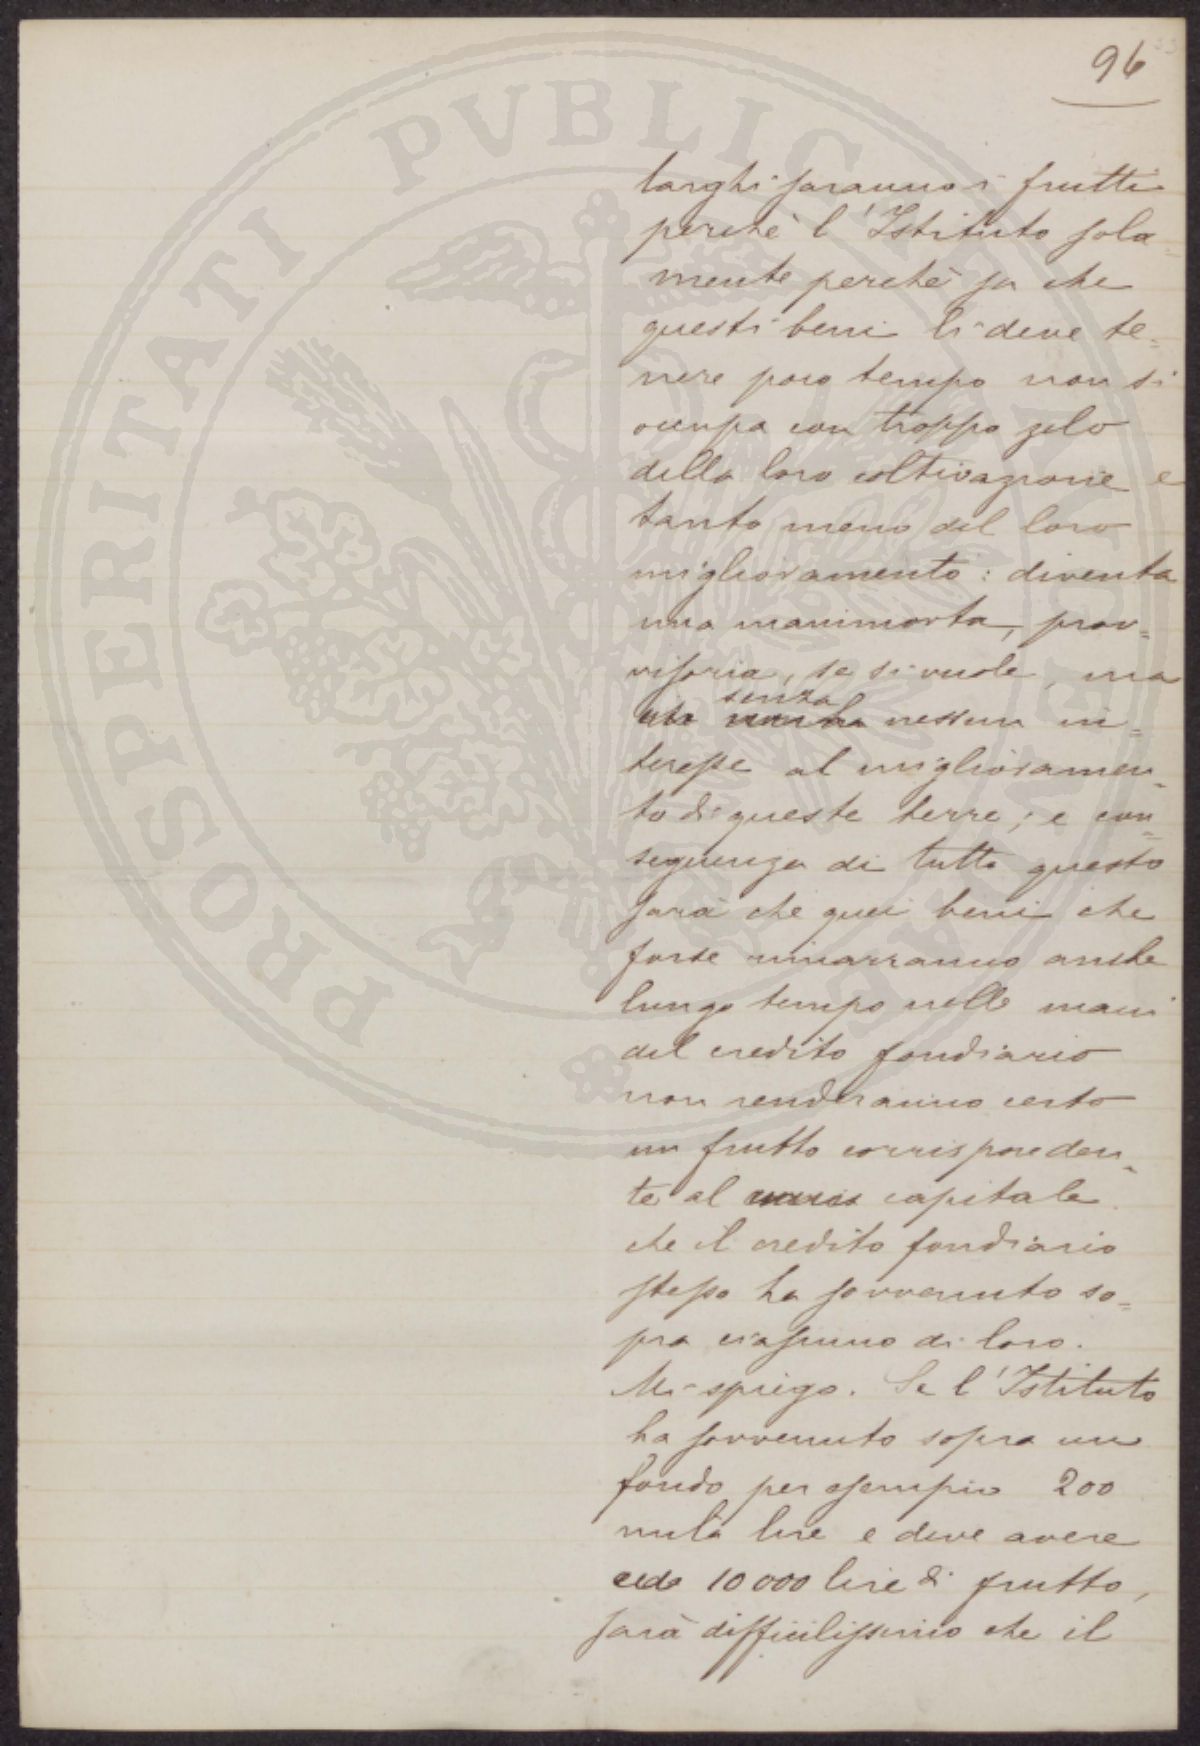 96
larghi saranno i frutti
perchè l'Istituto sola=
mente perchè sa che
questi beni li deve te=
nere poco tempo non si
occupa con troppo zelo
della loro coltivazione e
tanto meno del loro
miglioramento: diventa
una manimorta, prov=
visoria, se si vuole, ma
senza
nessun in=
teresse al miglioramen=
to di queste terre; e con=
seguenza di tutto questo
sarà che quei beni che
forse rimarranno anche
lungo tempo nelle mani
del credito fondiario
non renderanno certo
un frutto corrisponden=
te al capitale
che il credito fondiario
stesso ha sovvenuto so=
pra ciascuno di loro.
Mi spiego. Se l'Istituto
ha sovvenuto sopra un
fondo per esempio 200
mila lire e deve avere
10000 lire di frutto,
sarà difficilissimo che il
PROSPERITATI PVBLICAE